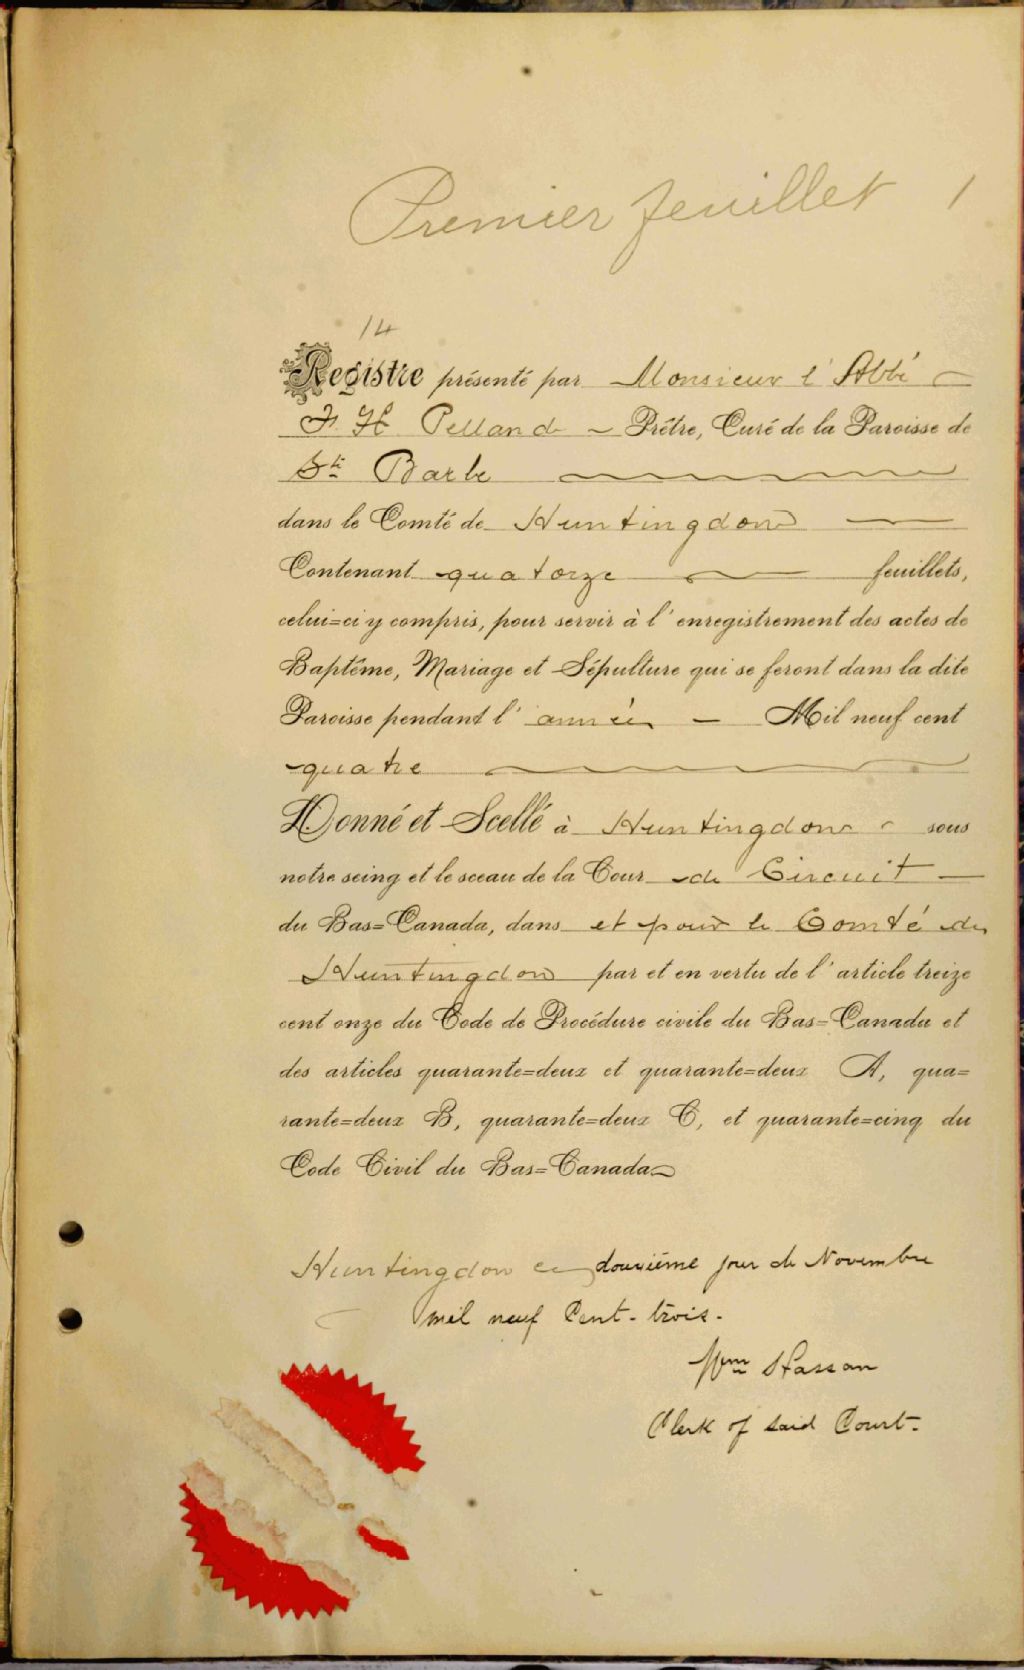 Premier feuillet 1
14
Registre présenté par Monsieur l'Abbé
Pelland Prêtre, Curé de la Paroisse de
Ste Barbe
dans le Comté de Huntingdon
Contenant quatorze feuillets,
celui=ci y compris, pour servir à l'enregistrement des actes de
Baptême, Mariage et Sépulture qui se feront dans la dite
Paroisse pendant l'année Mil neuf cent
quatre
Donné et Scellé à Huntingdon sous
notre seing et le sceau de la Cour de Circuit
du Bas=Canada, dans et pour le Comté de
Huntingdon par et en vertu de l'article treize
cent onze du Code de Procédure civile du Bas=Canada et
des articles quarante=deux et quarante=deux A, qua=
rante=deux B, quarante=deux C, et quarante=cinq du
Code Civil du Bas=Canada
Huntingdon ce douzième jour de Novembre
mil neuf Cent-trois.
Wm
Clerk of said Court.